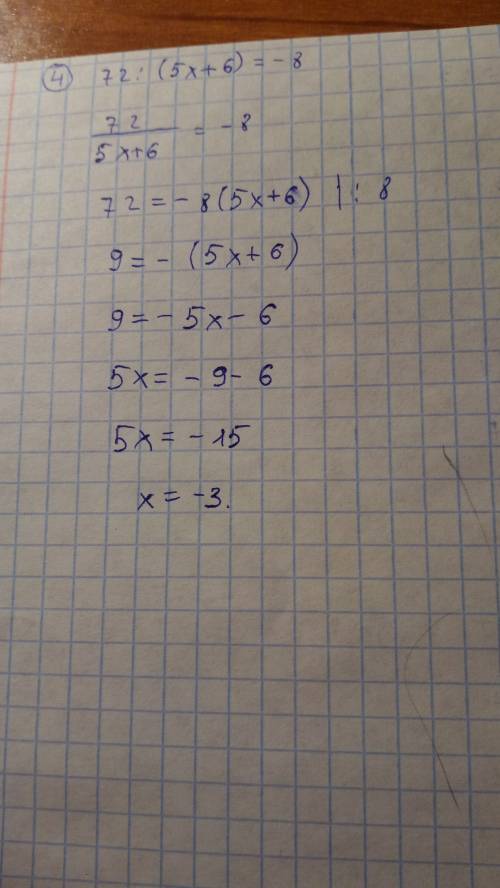 ④ 72 : (5x+6) = -8
72/(5x+6) = -8
72 = -8(5x+6) | : 8
9 = - (5x+6)
9 = - 5x - 6
5x = - 9 - 6
5x = - 15
x = -3.